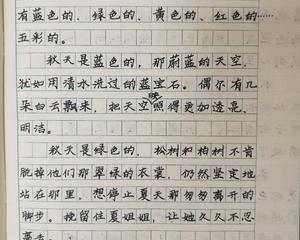 有蓝色的、绿色的、黄色的、红色的……
五彩的。
秋天是蓝色的，那蔚蓝的天空，
犹如用清水洗过的蓝宝石。偶尔有几
朵白云飘来，把天空映照得更加透亮、
明洁。
秋天是绿色的，松树和柏树不肯
脱掉他们那翠绿的衣裳，仍然坚定地
站在那里。想停止夏天那匆匆离开的
脚步。挽留住夏姐姐，让她久久不忍
离去。